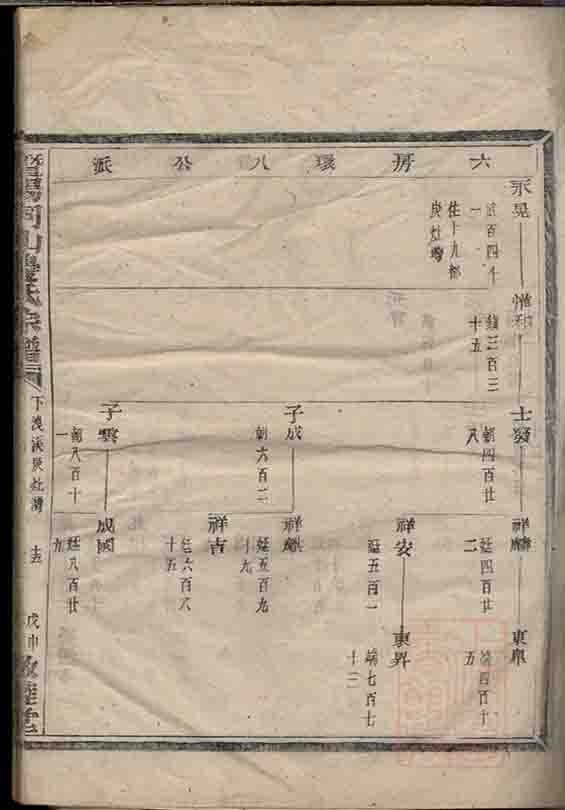 六房環八公派
永晃
百四十一
住十九都
庚灶灣
三百三十五
士發
朝四百廿八
祥麟
廷四百廿二
東皐
端四百十五
祥安
廷五百一
東昇
端七百七十三
子成
朝六百二
祥麒
廷五百九十九
祥吉
廷六百八十五
子雲
朝八百十一
成國
廷八百廿九
宗譜
下渡溪庚灶灣
戊申
敦睦堂